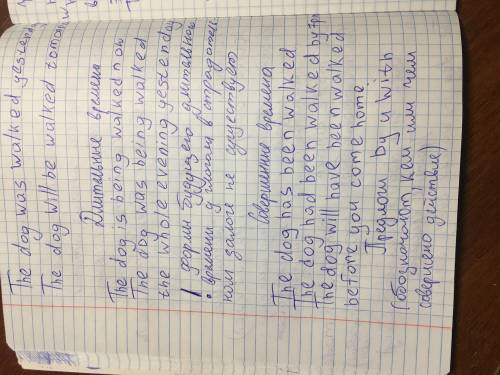 The dog was walked yesterday
The dog will be walked
Длительные времена
The dog is being walked now
The dog was being walked
the whole evening yesterday
! Форм будущего длительного
времени у глагола в страдатель
ном залоге не существует
Совершенные времена
The dog has been walked
The dog had been walked by 7pm
The dog will have been walked
before you come home
Предлоги by и with
(обозначают, кем или чем
совершено действие)